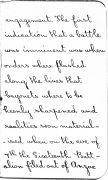 engagement. The first
intication that a battle
was imminent was when
orders where flashed
along the line that
bayonets where to be
keenly sharpened and
realities soon material-
ised when on the eve of
7th the Sixteenth Batt-
alion filed out of Anzac